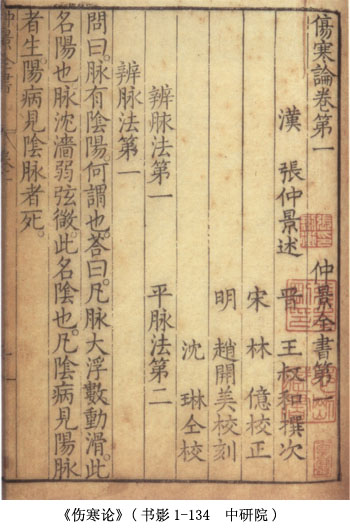 傷寒論卷第一
仲景全書第一
漢 張仲景述
晉 王叔和撰次
宋 林 億校正
明 趙開美校刻
沈 琳仝校
辨脉法第一 平脉法第二
辨脉法第一
問曰。脉有陰陽。何謂也。荅曰。凡脉大浮數動滑。此
名陽也。脉沈濇弱弦微。此名陰也。凡陰病見陽脉
者生。陽病見陰脉者死。
仲景全書
《伤寒论》( 书影 1-134 中研院 )